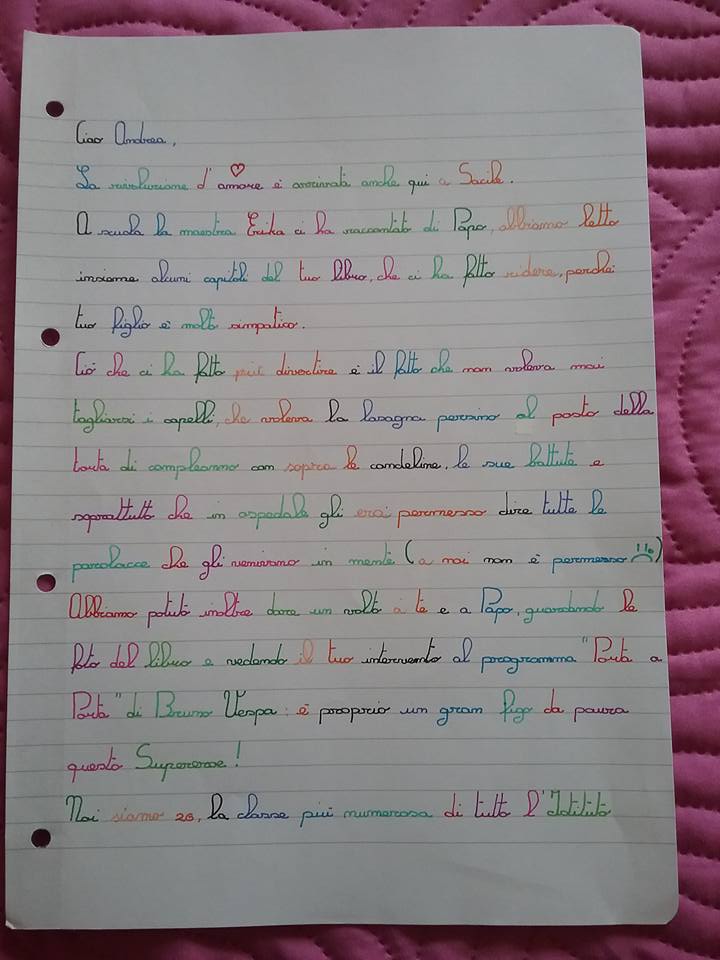 Ciao Andrea,
La rivoluzione d'amore è arrivata anche qui a Sacile.
A scuola la maestra Erika ci ha raccontato di Papo, abbiamo letto
insieme alcuni capitoli del tuo libro, che ci ha fatto ridere, perché
tuo figlio è molto simpatico.
Ciò che ci ha fatto più divertire è il fatto che non voleva mai
tagliarsi i capelli, che voleva la lasagna persino al posto della
torta di compleanno con sopra le candeline, le sue battute e
soprattutto che in ospedale gli era permesso dire tutte le
parolacce che gli venivano in mente (a noi non è permesso !!)
Abbiamo potuto inoltre dare un volto a te e a Papo, guardando le
foto del libro e vedendo il tuo intervento al programma "Porta a
Porta" di Bruno Vespa: è proprio un gran figo da paura
questo Supereroe!
Noi siamo 26, la classe più numerosa di tutto l'Istituto